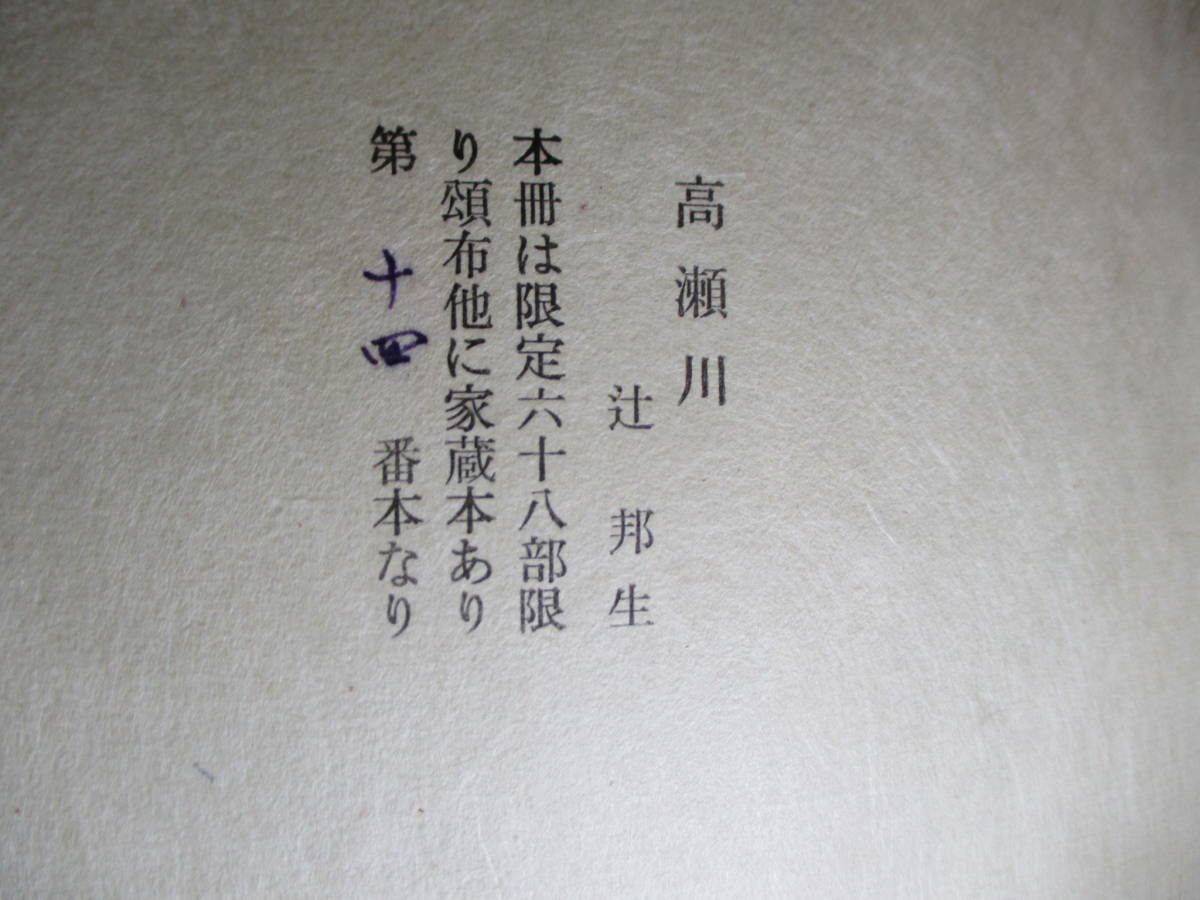 高瀬川
辻邦生
本冊は限定六十八部限
り頒布他に家蔵本あり
第十四番本なり